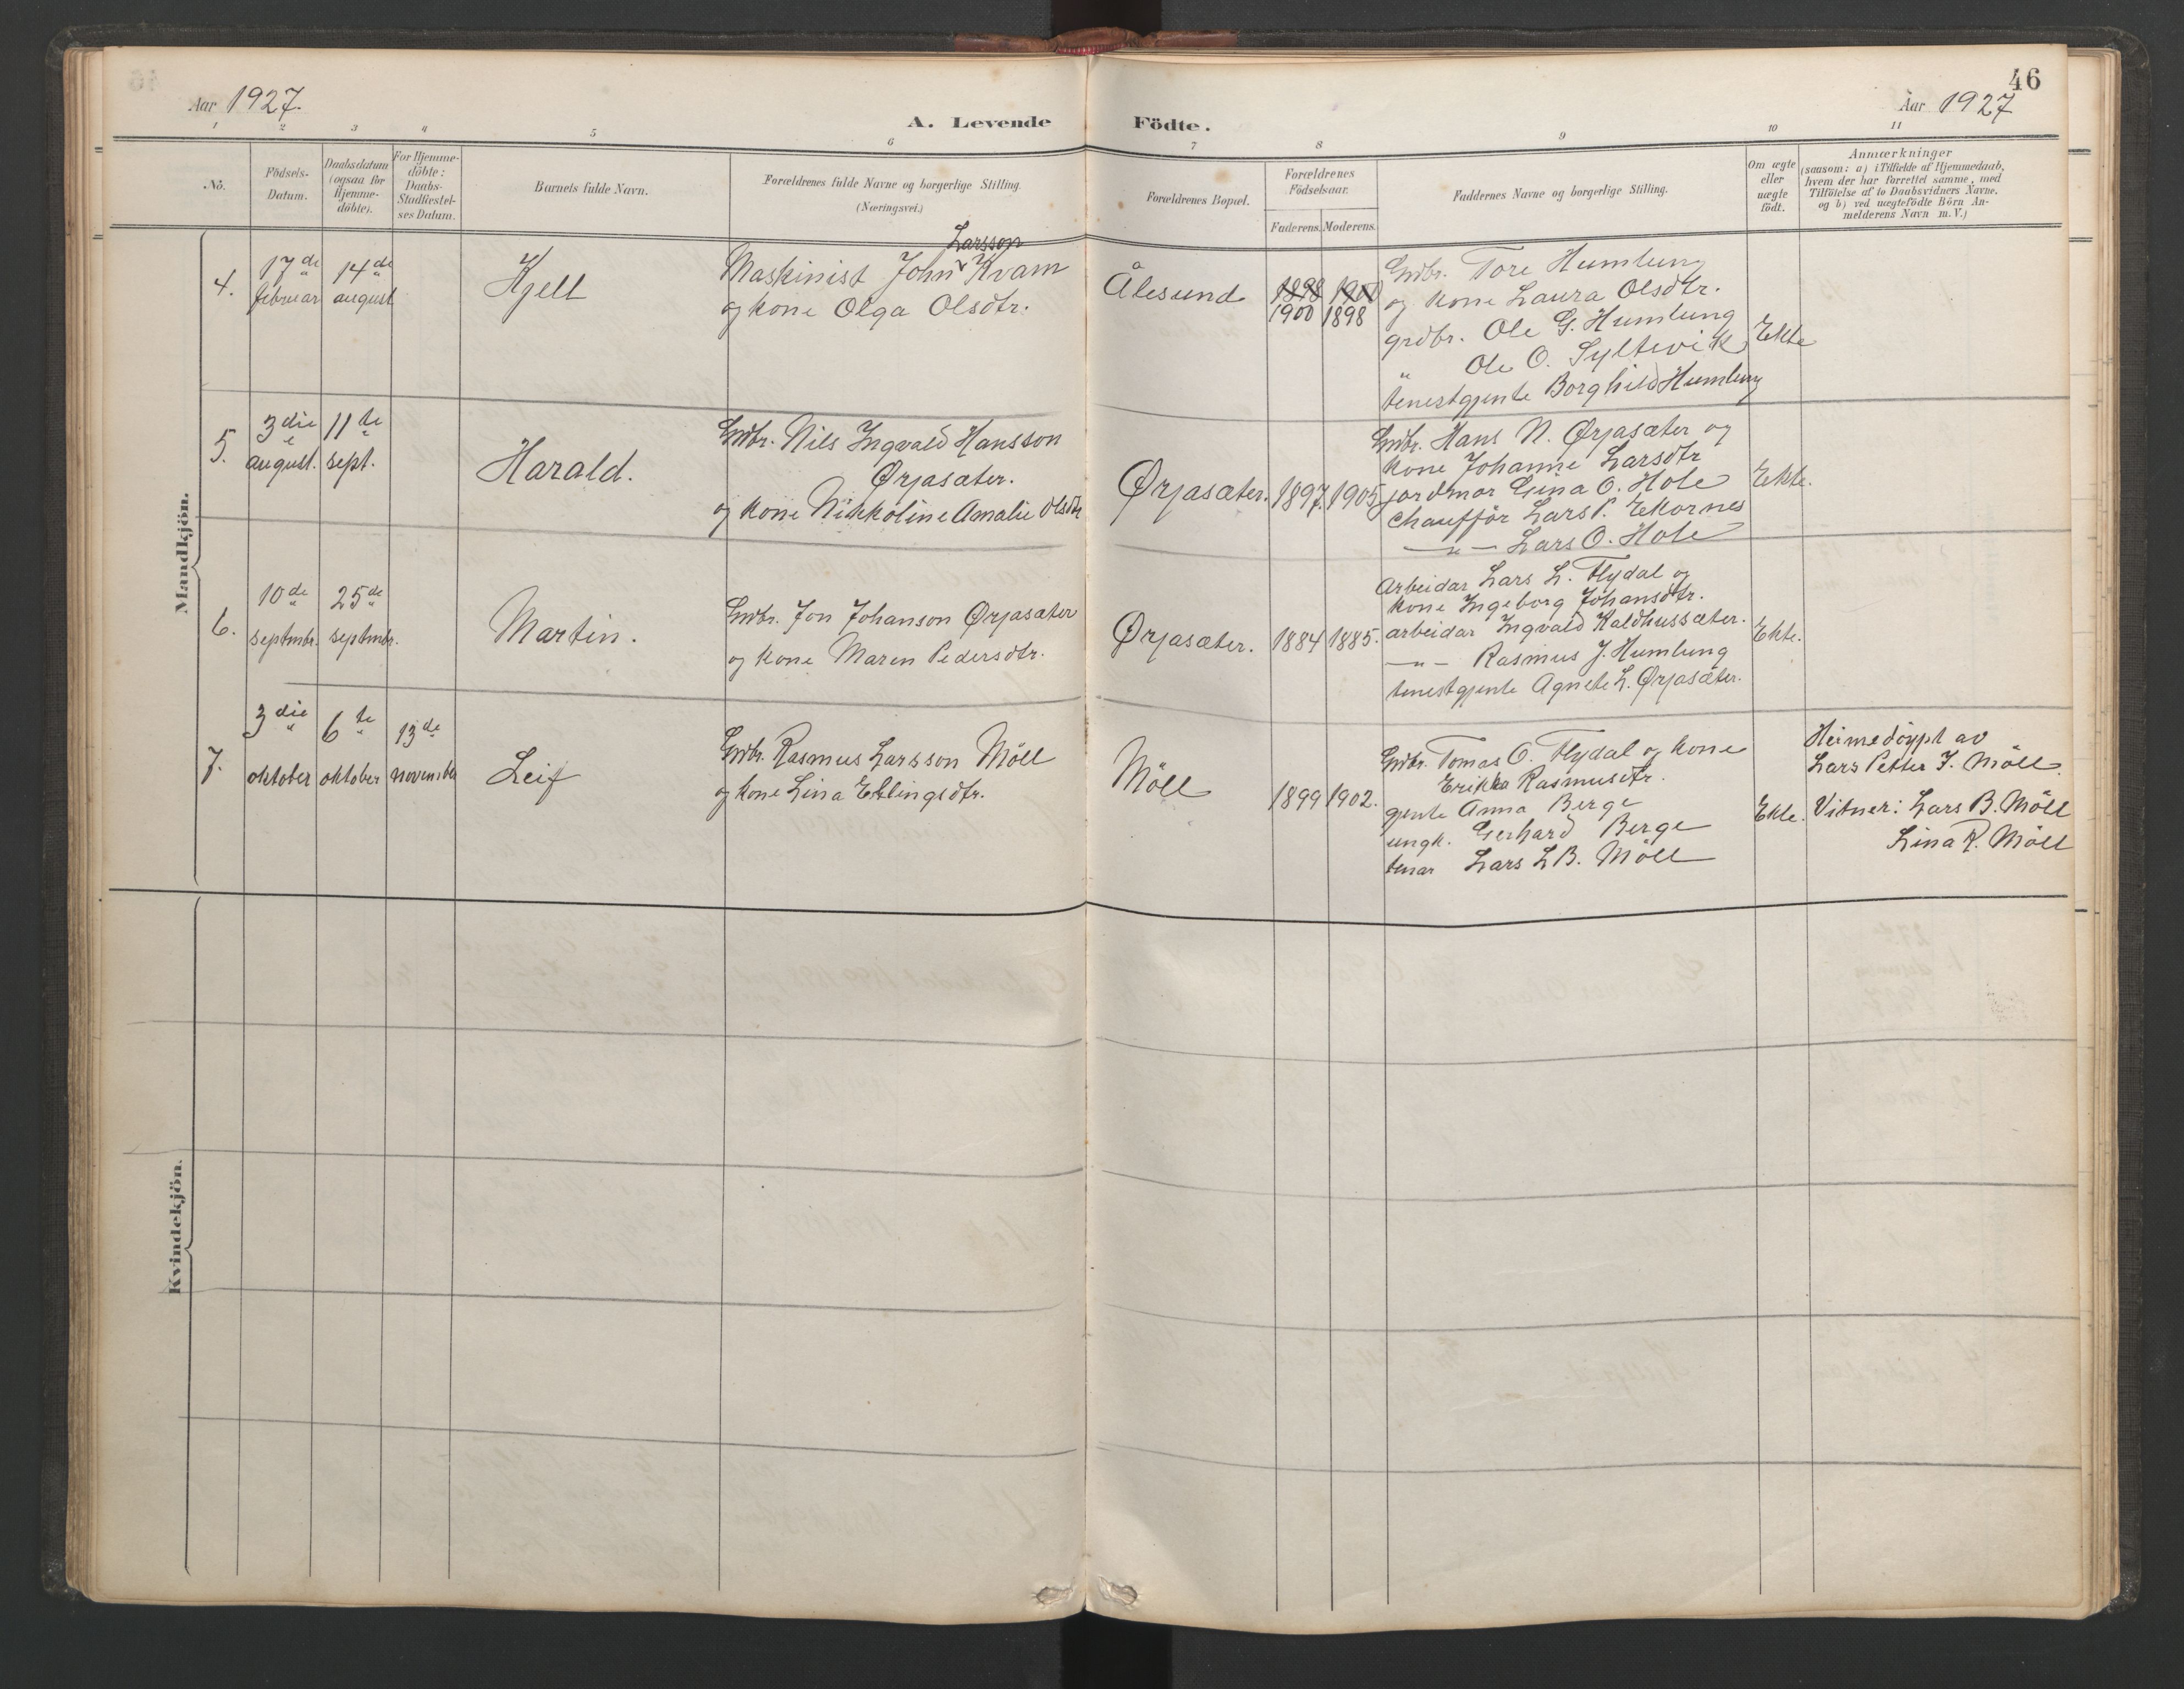 46
Aar 1927.
Aar 1927
A. Levende Födte.
1 2 3 4 5 6 7 8 9 10 11
No.
Födsels-
Datum.
Daabsdatum
(ogsaa for
Hjemme-
döbte).
For Hjemme-
döbte:
Daabs-
Stadfæstel-
ses Datum.
Barnets fulde Navn.
Forældrenes fulde Navne og borgerlige Stilling.
(Næringsvei.)
Forældrenes Bopæl.
Forældrenes
Födselsaar.
Faderens. Moderens.
Faddernes Navne og borgerlige Stilling.
Om ægte
eller
uægte
födt.
Anmærkninger
(saasom: a) i Tilfælde af Hjemmedaab,
hvem der har forrettet samme, med
Tilföielse af to Daabsvidners Navne.
og b) ved uægtefödte Börn An-
melderens Navn m. V.)
Mandkjön.
4.
17de
februar
14de
august
Kjell
Larsson
Maskinist John Kvam
og kone Olga Olsdtr.
Ålesund
1898 1900
1900 1898
Grdbr. Tore Humlung
og kone Laura Olsdtr.
grdbr. Ole G. Humlung
" Ole O. Syltevik
tenestgjente Borghild Humlung
Ekte
5.
3die
august.
11te
sept.
Harald.
Grdbr. Nils Ingvald Hansson
Ørjasæter.
og kone Nikkoline Amalie Olsdtr
Ørjasæter.
1897. 1905
Grdbr. Hans N. Ørjasæter og
kone Johanne Larsdtr
jordmor Gina O. Hole
chaufför Lars P. Ekornes
— " — Lars O. Hole
Ekte.
6.
10de
septmbr.
25de
septmbr.
Martin.
Grdbr. Jon Johanson Ørjasæter
og kone Maren Pedersdtr.
Ørjasæter.
1884 1885.
Arbeidar Lars L. Flydal og
kone Ingeborg Johansdtr.
arbeidar Ingvald Kaldhussæter.
— " — Rasmus J. Humlung
tenestgjente Agnete L. Ørjasæter.
Ekte.
7.
3die
oktober
6te
oktober
13de
november
Leif
Grdbr. Rasmus Larsson Möll
og kone Lina Ellingsdtr.
Möll
1899 1902.
Grdbr. Tomas O. Flydal og kone
Erikka Rasmusdtr.
gjente Anna Berge
ungk. Gerhard Berge
tenar Lars L.B. Möll
Ekte.
Heimedöypt av
Lars Petter J. Möll.
Vitner: Lars B. Möll
Lina R. Möll
Kvindekjön.